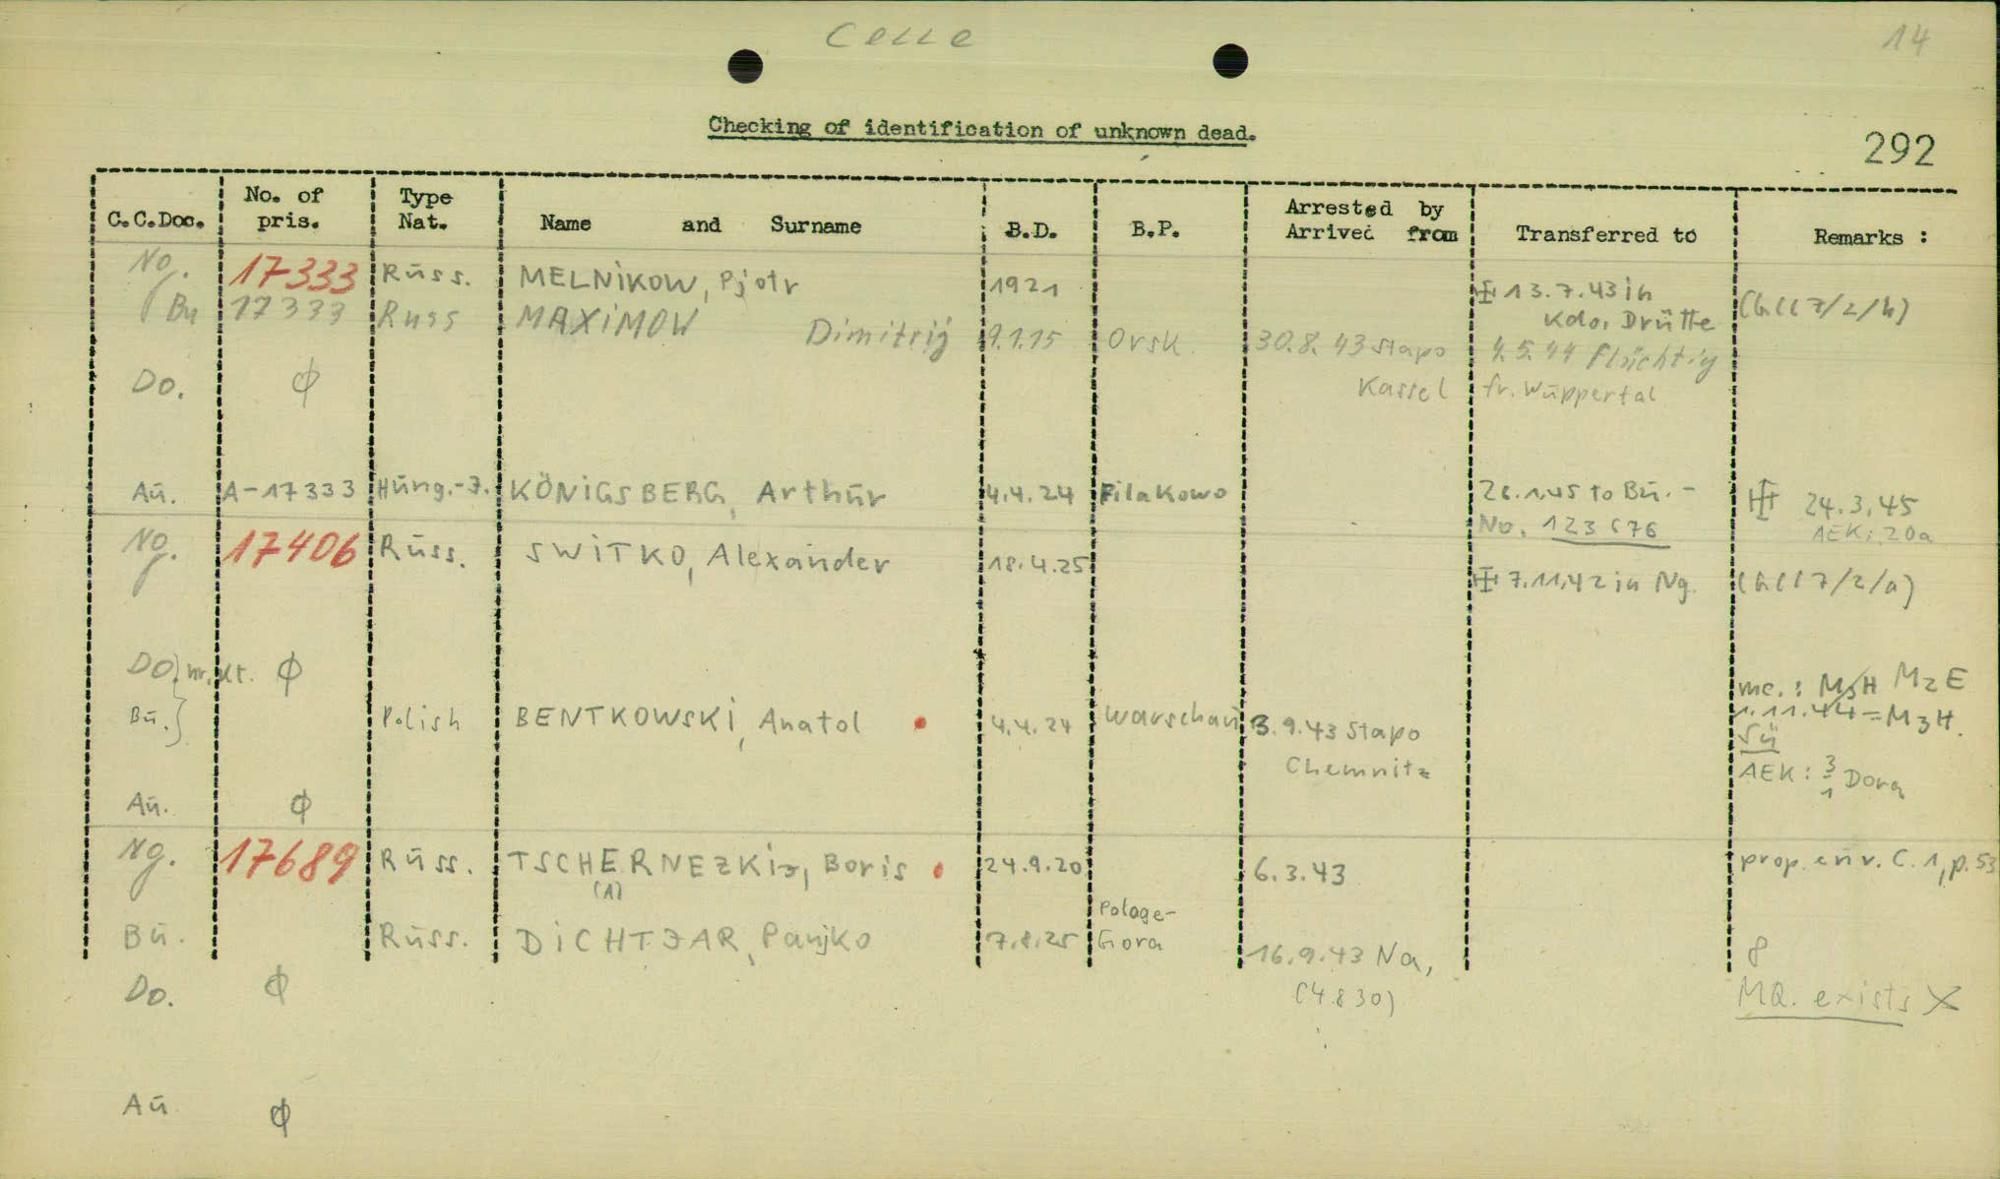 Celle
14
Checking of identification of unknown dead.
292
C.C.Doc. No. of pris. Type Nat. Name and Surname B.D. B.P. Arrested by Arrived from Transferred to Remarks :
Ng. 17333 Russ. MELNIKOW, Pjotr 1921 13.7.43 in Kdo. Drütte
Bu 17333 Russ MAXIMOW Dimitrij 9.1.15 Orsk. 30.8.43 Stapo Kassel 4.5.44 flüchtig fr. Wuppertal
Do. ϕ
Au. A-17333 Hung.-J. KÖNIGSBERG, Arthur 4.4.24 Filakowo 26.1.45 to Bu.- No. 123676 24.3.45 AEK: 20a
Ng. 17406 Russ. SWITKO, Alexander 18.4.25 7.11.42 in Ng.
Do. ϕ
Bu. Polish BENTKOWSKI, Anatol 4.4.24 Warschau 3.9.43 Stapo Chemnitz mc.: M3H MzE 1.11.44=M3H. AEK: 3/1 Dora
Au. ϕ
Ng. 17689 Russ. TSCHERNEZKIJ, Boris 24.9.20 6.3.43 prop. env. C. 1, p. 53
(1)
Bu. Russ. DICHTJAR, Panjko 7.8.25 Pologe-Gora 16.9.43 Na, (4830) 8
Do. ϕ MQ. exists X
Au ϕ